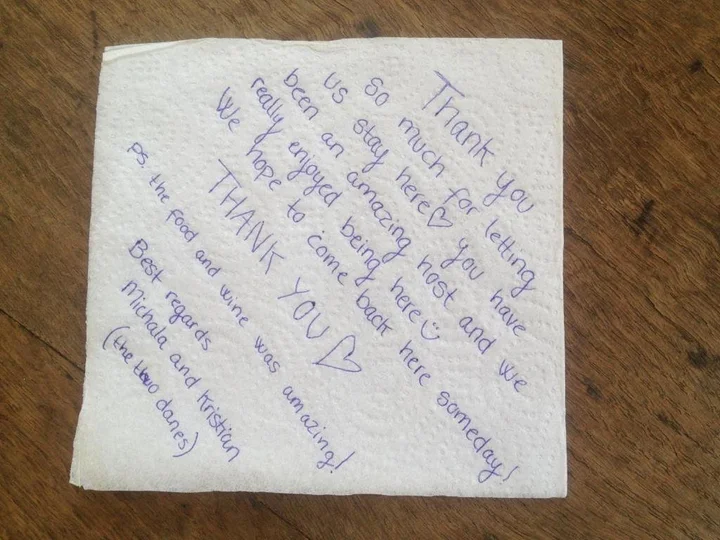 Thank you
so much for letting
us stay here♡ you have
been an amazing host and we
really enjoyed being here☺
We hope to come back here someday!
THANK YOU♡
PS. the food and wine was amazing!
Best regards
Michala and Kristian
(the two danes)